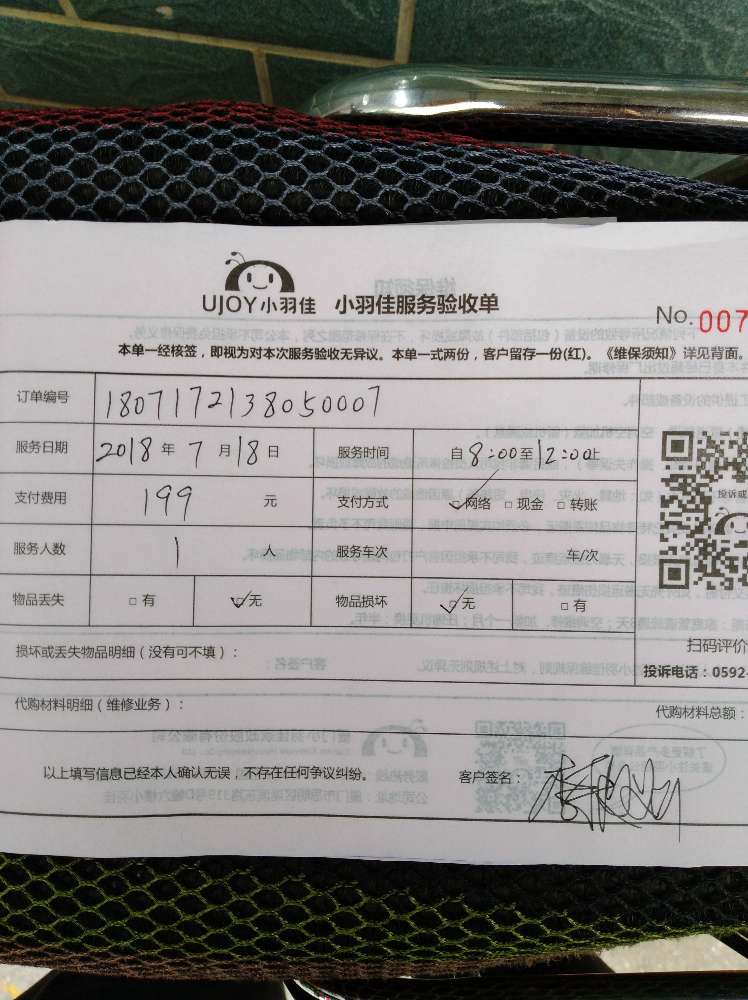 UJOY小羽佳 小羽佳服务验收单
No. 007
本单一经核签，即视为对本次服务验收无异议。本单一式两份，客户留存一份(红)。《维保须知》详见背面。
订单编号 1807172138050007
服务日期 2018 年 7 月 18 日 服务时间 自 8:00 至 12:00 止
支付费用 199 元 支付方式 ☑网络 □现金 □转账
服务人数 1 人 服务车次 车/次
物品丢失 □有 ☑无 物品损坏 ☑无 □有
投诉或
扫码评价
损坏或丢失物品明细（没有可不填）：
投诉电话：0592-
代购材料明细（维修业务）： 代购材料总额：
以上填写信息已经本人确认无误，不存在任何争议纠纷。 客户签名：